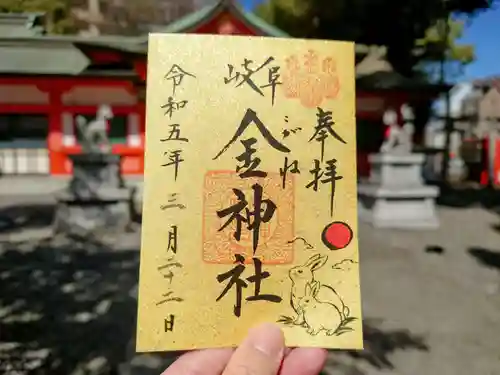 奉拝
岐阜
金神社
こがね
令和五年
三月二十二日